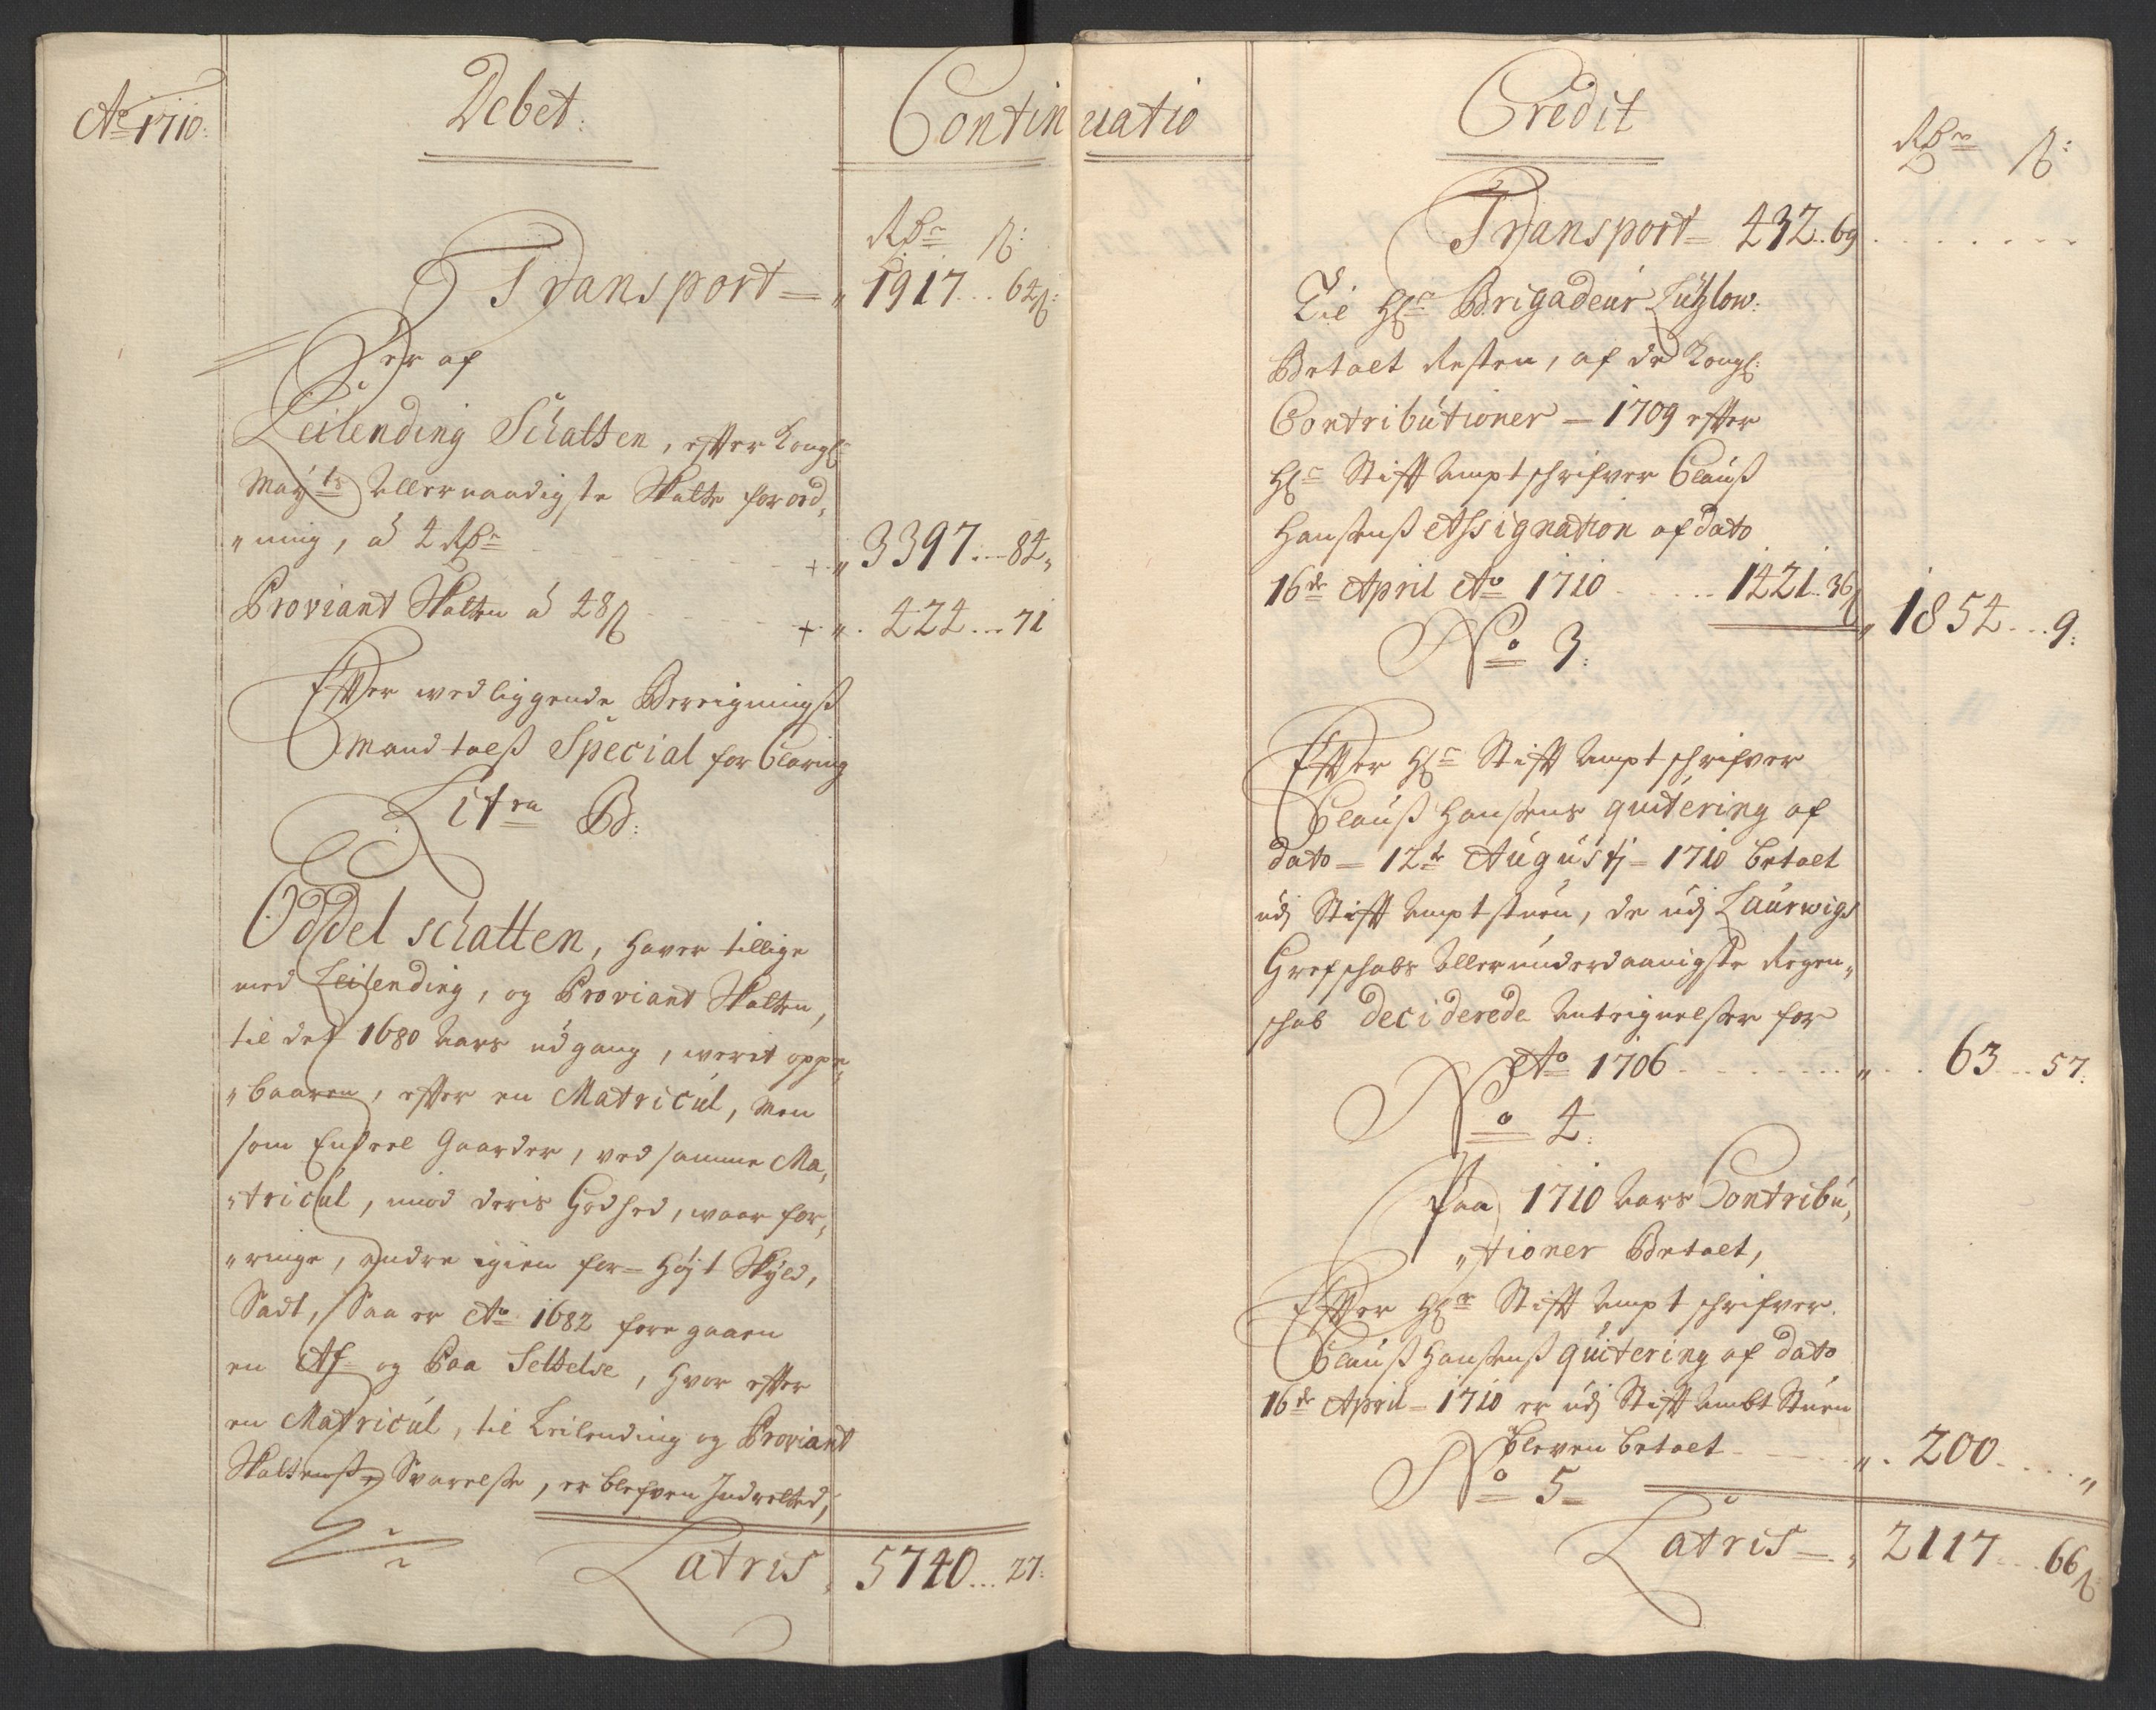 Ao 1710:
Debet:
Continuatio
Rdr ß:
Transport = „ 1917... 64ß:
Der af
Leilending Schatten, efter Kongl:
May:ts Allernaadigste Skatte forord„
„ning, à 4 Rdr + „ 3397...84„
Proviant Skatten à 48ß + „. 424...71
Efter wedliggende Bereigningß
Mandtalß Special forClaring
Litra B:
Oddel schatten, hafver tillige
med Leilending, og Proviant Skatten,
til det 1680 Aars udgang, werit oppe„
„baaren, efter en Matricul, Men
som Endeel Gaarder, ved samme Ma„
„tricul, imod deris Godhed, waar for„
„ringe, andre igien for = Høyt Skyld,
Sadt, Saa er Ao 1682 foregaaen
en Af= og Paa Settelse, hvor efter
en Matricul, til Leilending og Proviant
Skattenß Svarelse, er blefven Indrettet,
Latris „ 5740...27:
Credit
Rdr ß:
Transport = 432..69
Til Hr Brigadeur Lützow:
Betalt Resten, af de Kongl:
Contributioner = 1709 efter
Hr Stiftamptschrifver Clauß
Hanßenß Assignation af dato
16de April Ao 1710 1421..36ß „ 1854...9:
No 3:
Efter Hr Stiftamptschrifver
Clauß Hanßens quitering af
dato = 12te Augustj = 1710 betalt
udj Stiftamptstuen, de udj Laurwigs
Grefschabs Allerunderdaanigste Regen„
schab deciderede Antegnelser for
Ao 1706 „ .. 63...57:
No 4:
Paa 1710 Aars Contribu„
„tioner Betalt,
Efter Hr Stift Amptschrifver
Clauß Hanßenß quitering af dato
16de April = 1710 er udj Stift Ambt Stuen
bleven betalt „. 200....„
No 5=
Latris = „ 2117...66ß: